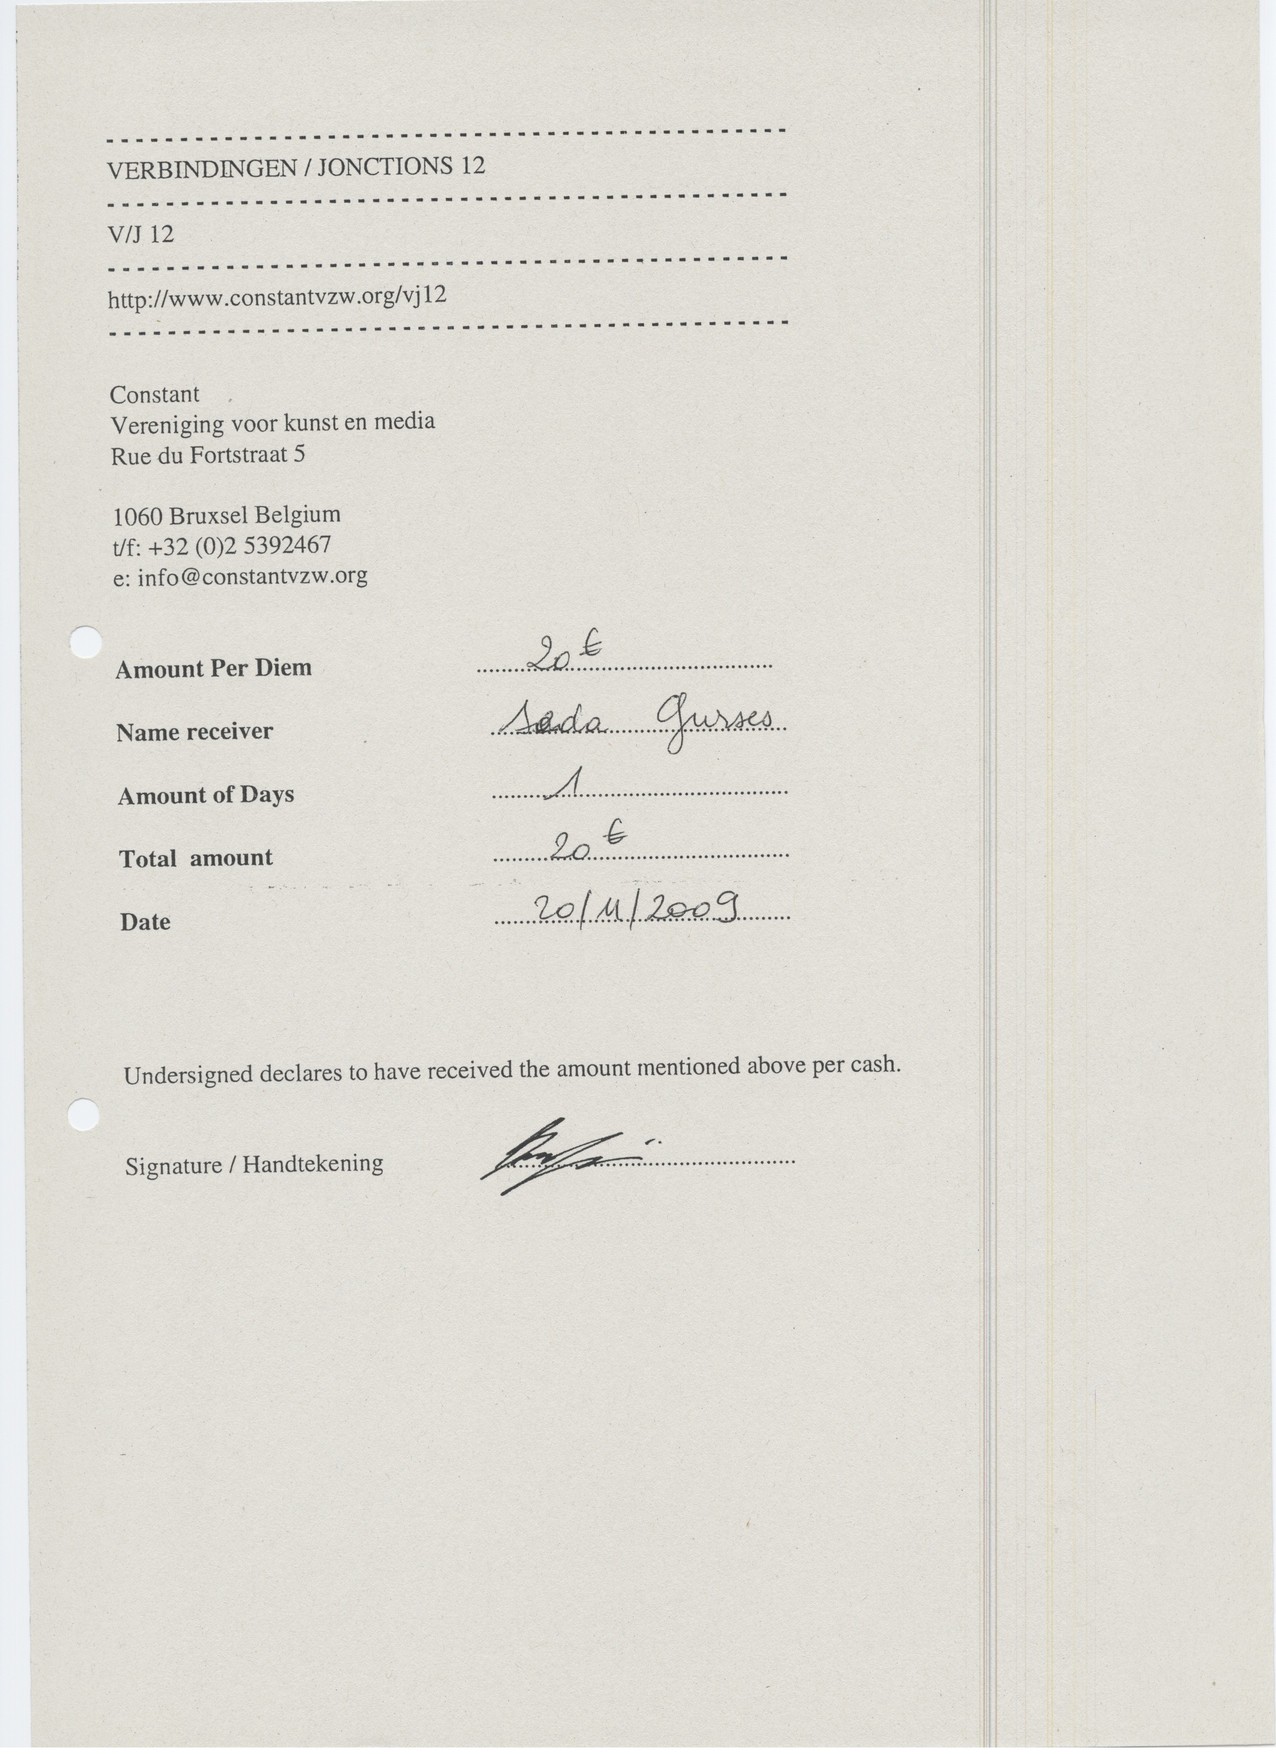 VERBINDINGEN / JONCTIONS 12
V/J 12
http://www.constantvzw.org/vj12
Constant
Vereniging voor kunst en media
Rue du Fortstraat 5
1060 Bruxsel Belgium
t/f: +32 (0)2 5392467
e: info@constantvzw.org
Amount Per Diem 20 €
Name receiver Seda Gurses
Amount of Days 1
Total amount 20 €
Date 20/11/2009
Undersigned declares to have received the amount mentioned above per cash.
Signature / Handtekening